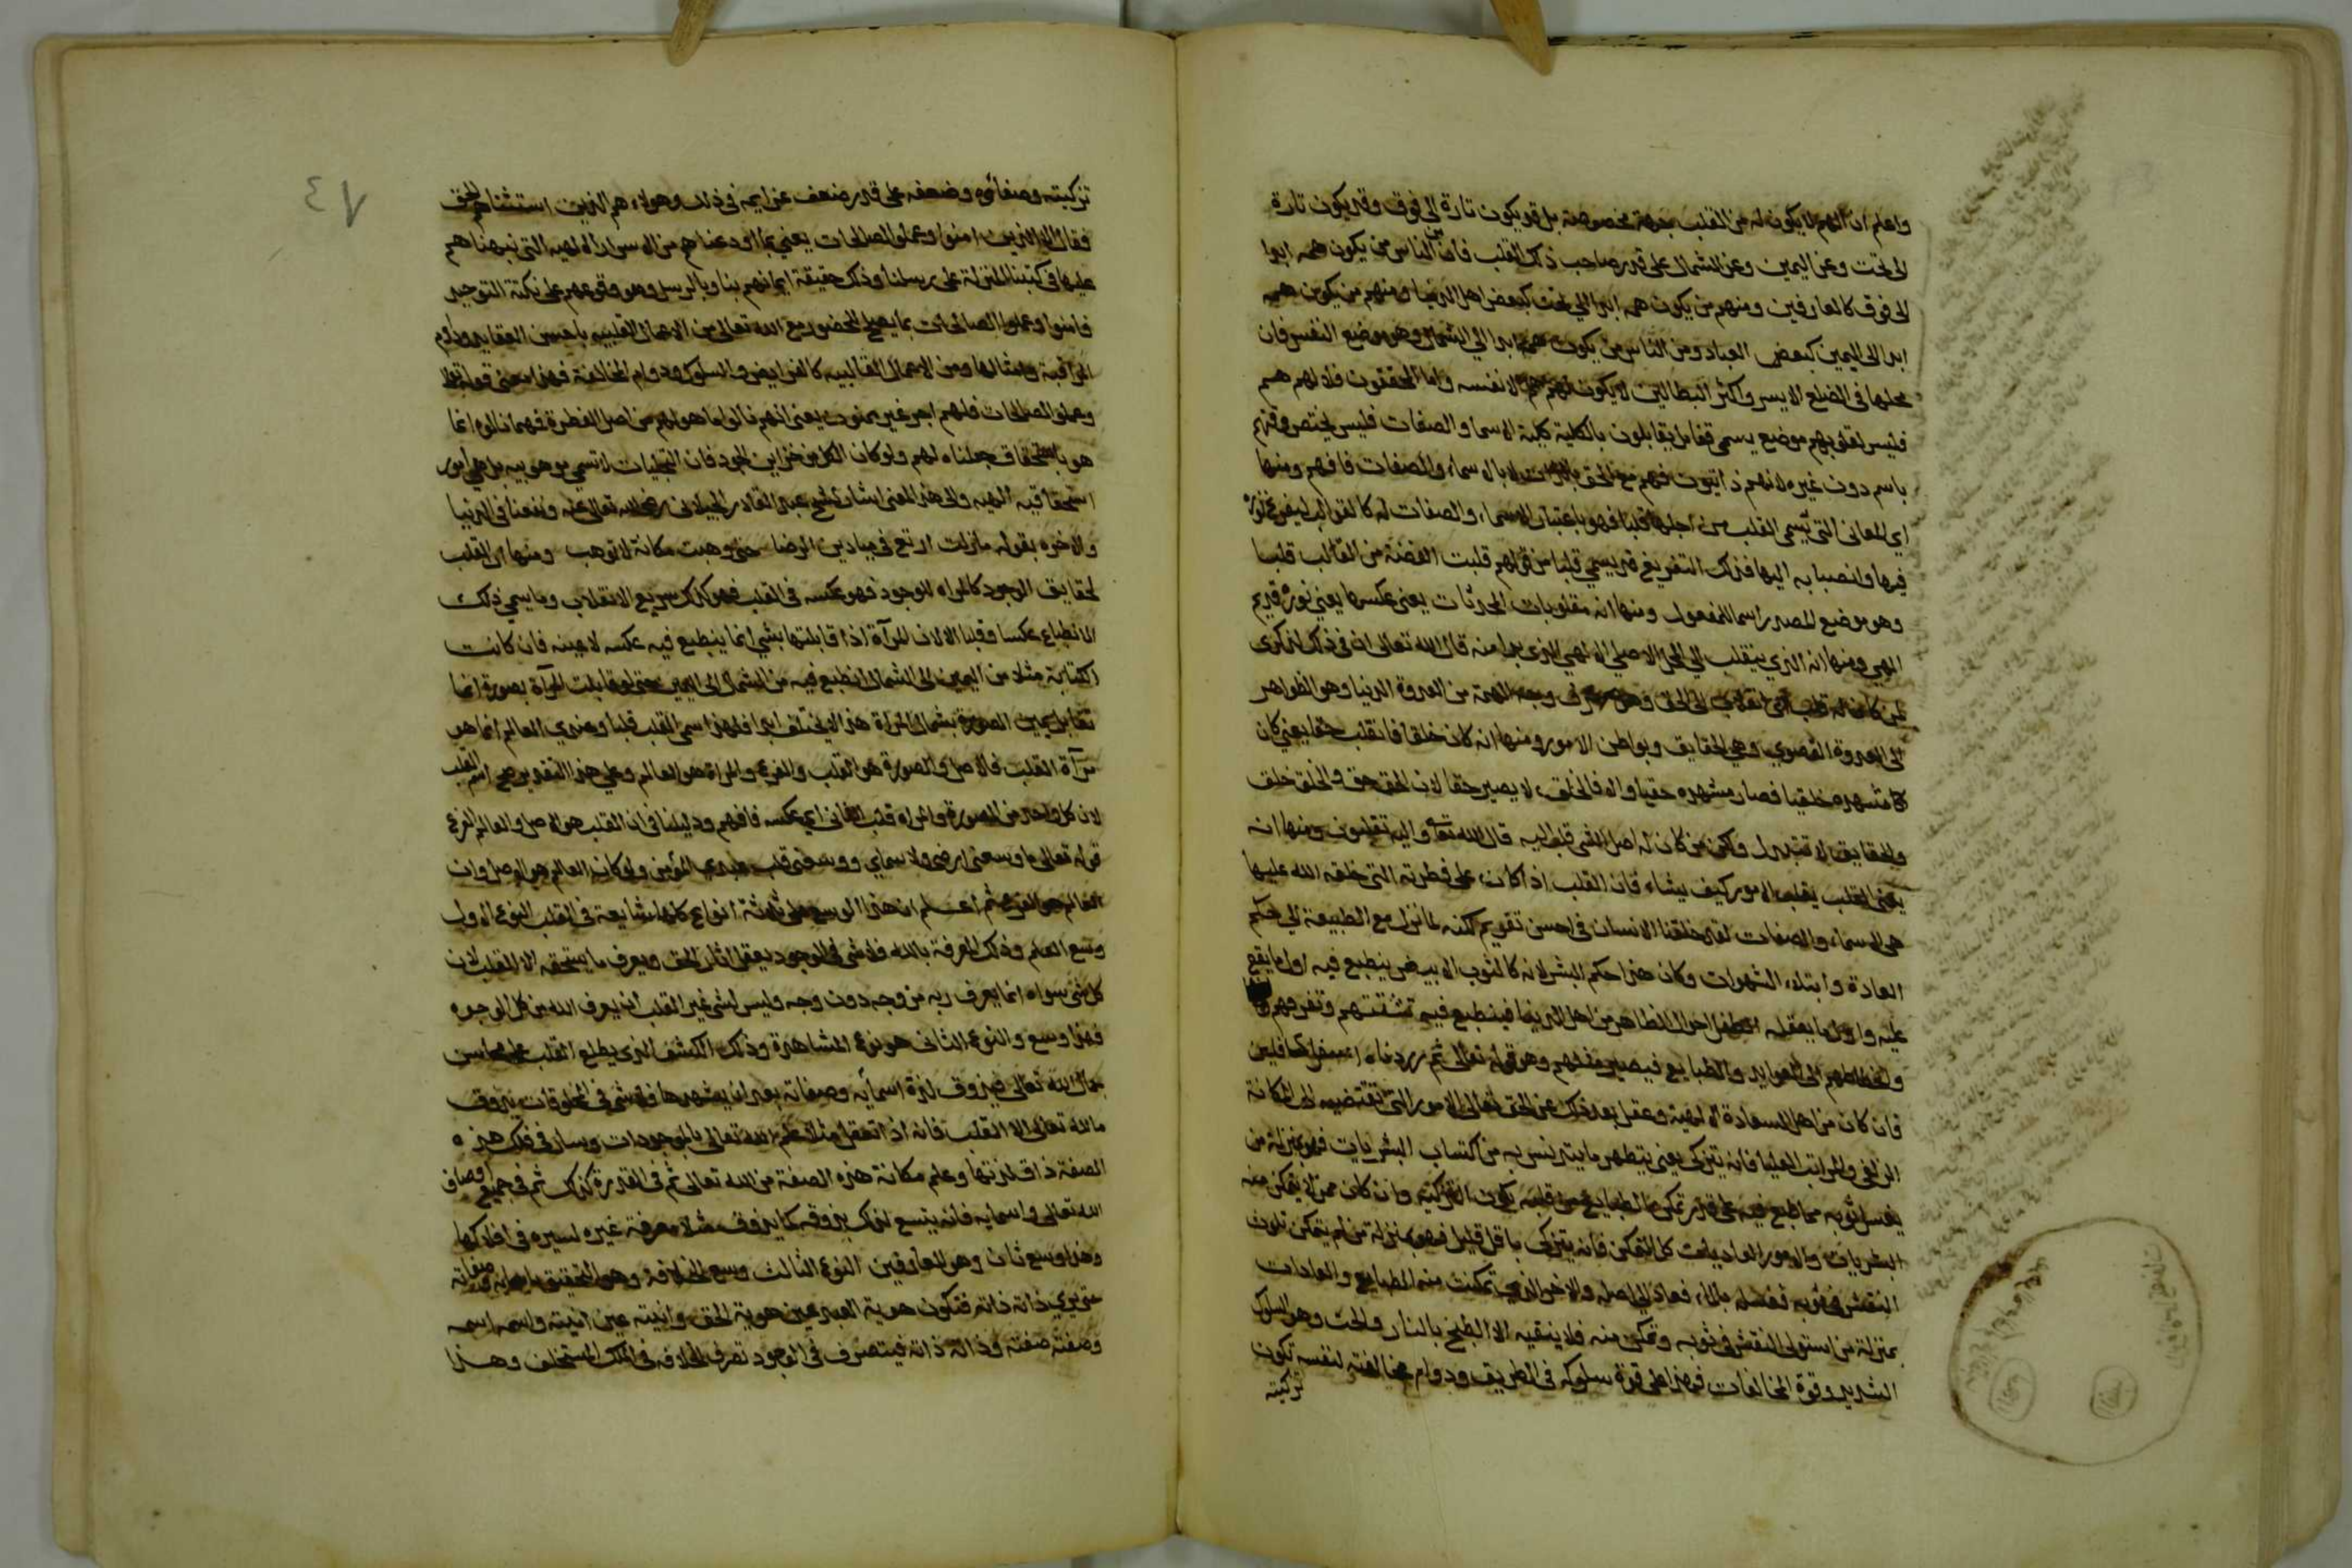 واعلم ان الهم لا يكون له من القلب جهة مخصوصة بل قد يكون تارة الى فوق وقد يكون تارة
الى تحت وعن اليمين وعن الشمال على قدر صاحب ذلك القلب فان من الناس من يكون همه ابدا
الى فوق كالعارفين ومنهم من يكون همه ابدا الى تحت كبعض اهل الدنيا ومنهم من يكون همه
ابدا الى اليمين كبعض العباد ومن الناس من يكون همه ابدا الى الشمال وهو موضع النفس فان
محلها في الضلع الايسر واكثر البطالين لا يكون لهم هم الا نفسه واما المحققون فلا لهم هم
فليس لقلوبهم موضع يسمى قفا بل يقابلون بالكلية كلية الاسما والصفات فليس يختص وقتهم
باسم دون غيره لانهم ذاتيون فهم مع الحق بالذات لا بالاسماء والصفات فافهم ومنها
اي المعاني التي يسمى القلب من اجلها قلبا فهو باعتبار الاسماء والصفات له كالقوالب ليفرغ نوره
فيها وانصبابه اليها فذلك التفريغ قد يسمى قلبا من قولهم قلبت الفضة من القالب قلبا
وهو موضع المصدر اسما للمفعول ومنها انه مقلوبات المحدثات يعني عكسها يعني نوره قديم
الهي ومنها انه الذي ينقلب الى المحل الاصلي الالهي الذي بدا منه قال الله تعالى ان في ذلك لذكرى
لمن كان له قلب اي انقلاب الى الحق وهو صرف وجه الهمة من العدوة الدنيا وهو الظواهر
الى العدوة القصوى وهي الحقايق وبواطن الامور ومنها انه كان خلقا فانقلب حقا يعني كان
مشهده خلقيا فصار مشهده حقيا والا فالخلق لا يصير حقا لان الحق حق والخلق خلق
والحقايق لا تتبدل ولكن من كان له اصل الشي قلب اليه قال الله تعا واليه تقلبون ومنها انه
يعني القلب يقلب الامور كيف يشاء فان القلب اذا كان على فطرته التي خلقه الله عليها
هي الاسماء والصفات لقد خلقنا الانسان في احسن تقويم لكنه لما نزل مع الطبيعة الى حكم
العادة وابتلاء الشهوات وكان هذا حكم البشر لانه كالثوب الابيض ينطبع فيه اول ما يقع
عليه واول ما يعقله الطفل احوال الظاهر من اهل الدنيا فينطبع فيه تشتتهم وتفرقهم
وانحطاطهم الى العوايد والطبايع فيصير مثلهم وهو قوله تعالى ثم رددناه اسفل سافلين
فان كان من اهل السعادة الالهية وعقل بعد ذلك عن الحق تعالى الامور التي تقتضيه الى المكانة
الزلفى والمراتب العليا فانه يتزكى يعني يتطهر مما تدنس به من اكتساب البشريات فهو بمنزلة من
يغسل ثوبه مما طبع فيه على قدر تمكن الطبايع من قلبه تكون التزكية وان كان ممن لا يتمكن منه
البشريات والامور العاديات كل التمكن فانه يتزكى باقل قليل فهو بمنزلة من لم يتمكن تلون
النقش في ثوبه فغسله بالماء فعاد الى اصله والاخر الذي تمكنت منه الطبايع والعادات
بمنزلة من استولى النقش في ثوبه وتمكن منه فلا ينقيه الا الطبخ بالنار والحت وهو السلوك
الشديد وقوة المخالفات فهذا على قوة سلوكه في الطريق ودوام مخالفته لنفسه تكون
تزكيته
٤٧
تزكيته وصفائه وضعفه على قدر ضعف عزايمه في ذلك وهولاء هم الذين استثناهم الحق
فقال الا الذين امنوا وعملوا الصالحات يعني بما اودعناهم من الاسرار الالهيه التي نبهناهم
عليها في كتبنا المنزلة على رسلنا وذلك حقيقة ايمانهم بنا وبالرسل وهو وقوعهم على نكتة التوحيد
فامنوا وعملوا الصالحات بما يصلح للحضور مع الله تعالى من الاعمال القلبيه باحسن العقايد ودوام
المراقبة وامثالها ومن الاعمال القالبيه كالفرايض والسلوك ودوام المخالفة فهذا معنى قوله
وعملوا الصالحات فلهم اجر غير ممنون يعني انهم نالوا ما هو لهم من اصل الفطرة فهما نالوه انما
هو باستحقاق جعلناه لهم ولو كان الكل من خزاين الجود فان التجليات لا تسمى موهوبه بل هي امور
استحقاقيه الهيه والى هذا المعنى اشار شيخ عبد القادر الجيلاني رضي الله تعالى عنه ونفعنا في الدنيا
والاخره بقوله مازلت ارتع في ميادين الرضا حتى وهبت مكانة لا توهب ومنها ان القلب
لحقايق الوجود كالمراه للوجود فهو عكسه في القلب فهو كذلك سريع الانقلاب وما يسمى ذلك
الانطباع عكسا وقلبا الا لان المرآة اذا قابلتها بشي انما ينطبع فيه عكسه لا عينه فان كانت
الكتابة مثلا من اليمين الى الشمال انطبع فيه من الشمال الى اليمين حتى لو قابلت المرآة بصورة انما
تقابل يمين الصورة بشمال المراة هذا لا يختلف ابدا فلهذا سمى القلب قلبا وعندي العالم انما هو
مرآة القلب فالاصل والصورة هو القلب والفرع والمراة هو العالم وعلى هذا التقدير صح اسم القلب
لان كل واحد من الصورة والمراه قلب الثاني اي عكسه فافهم ودليلنا في ان القلب هو الاصل والعالم الفرع
قوله تعالى ما وسعني ارضي ولا سماي ووسعني قلب عبدي المؤمن ولو كان العالم هو الاصل وان
العالم هو الفرع ثم اعلم ان هذا الوسع على ثلاثة انواع كلها شايعة في القلب النوع الاول
وسع العلم وذلك المعرفة بالله فلا شي في الوجود يعقل اثار الحق ويعرف ما يستحقه الا القلب لان
كل شي سواه انما يعرف ربه من وجه دون وجه وليس لشي غير القلب ان يعرف الله من كل الوجوه
فهذا وسع والنوع الثاني هو نوع المشاهدة وذلك الكشف الذي يطلع القلب على محاسن
جمال الله تعالى فيذوق لذة اسمايه وصفاته بعد ان يشهدها فلا شي في المخلوقات يذوق
ما لله تعالى الا القلب فانه اذا تعقل مثلا علم الله تعالى بالموجودات وسار في فلك هذه
الصفة ذاق لذتها وعلم مكانة هذه الصفة من الله تعالى ثم في القدرة كذلك ثم في جميع اوصاف
الله تعالى واسمايه فانه يتسع لذلك يذوقه كما يذوق مثلا معرفة غيره لسيره في افلاكها
وهذا وسع ثان وهو للعارفين النوع الثالث وسع الخلافة وهو التحقيق باسمائه وصفاته
حتى يرى ذاته ذاته فتكون هوية العبد عين هوية الحق وانيته عين انيته واسمه اسمه
وصفته صفته وذاته ذاته فيتصرف في الوجود تصرف الخلافه في الملك المستخلف وهذا